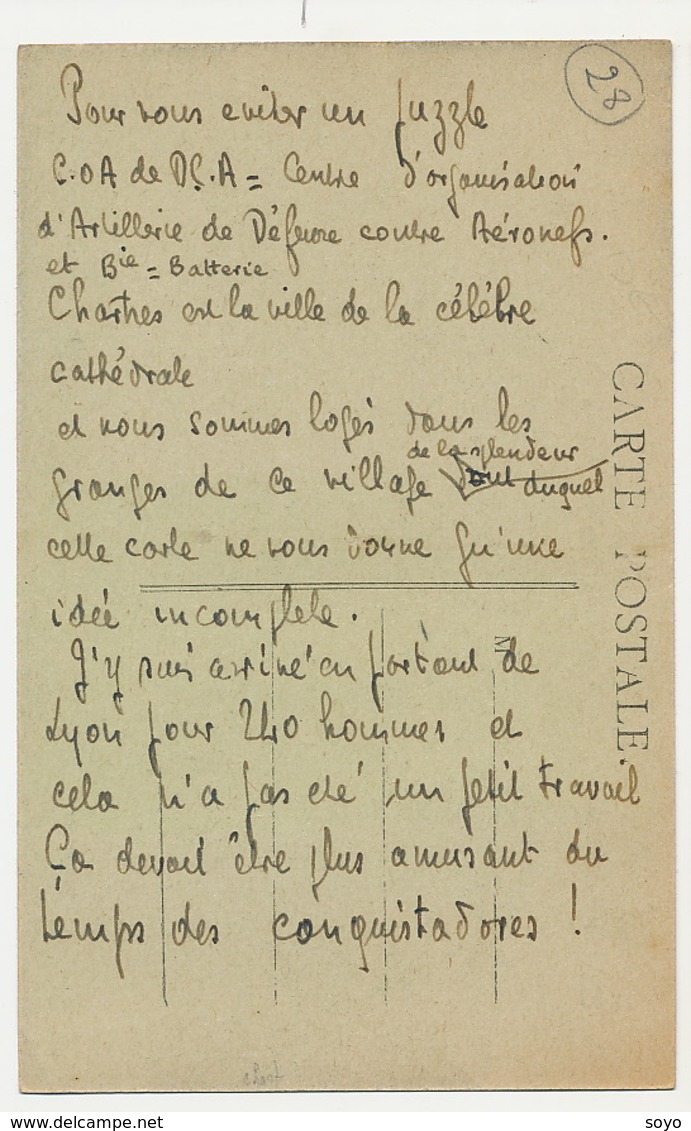 28
Pour vous eviter un puzzle
C.O.A de D.C.A = Centre d'organisation
d'Artillerie de Défense contre Aéronefs.
et Bie = Batterie
Chartres est la ville de la célèbre
cathédrale
et nous sommes logés dans les
de la splendeur
granges de ce village duquel
cette carte ne vous donne qu'une
idée incomplete.
J'y suis arrivé en partant de
Lyon pour 240 hommes et
cela n'a pas été un petit travail
Ça devait être plus amusant du
temps des conquistadores !
CARTE POSTALE.
M
soyo